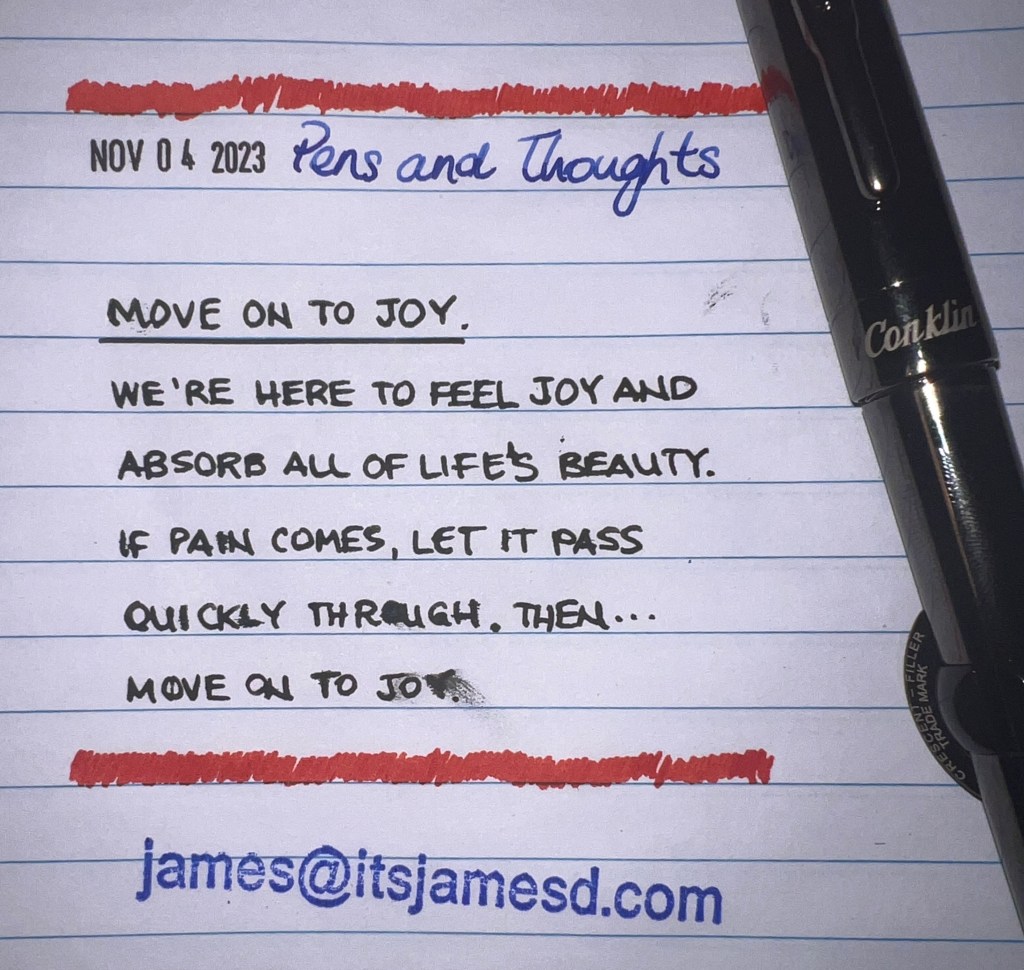 NOV 04 2023 Pens and Thoughts
MOVE ON TO JOY.
WE'RE HERE TO FEEL JOY AND
ABSORB ALL OF LIFE'S BEAUTY.
IF PAIN COMES, LET IT PASS
QUICKLY THROUGH. THEN...
MOVE ON TO JOY.
james@itsjamesd.com
Conklin
CRESCENT - FILLER
TRADE MARK